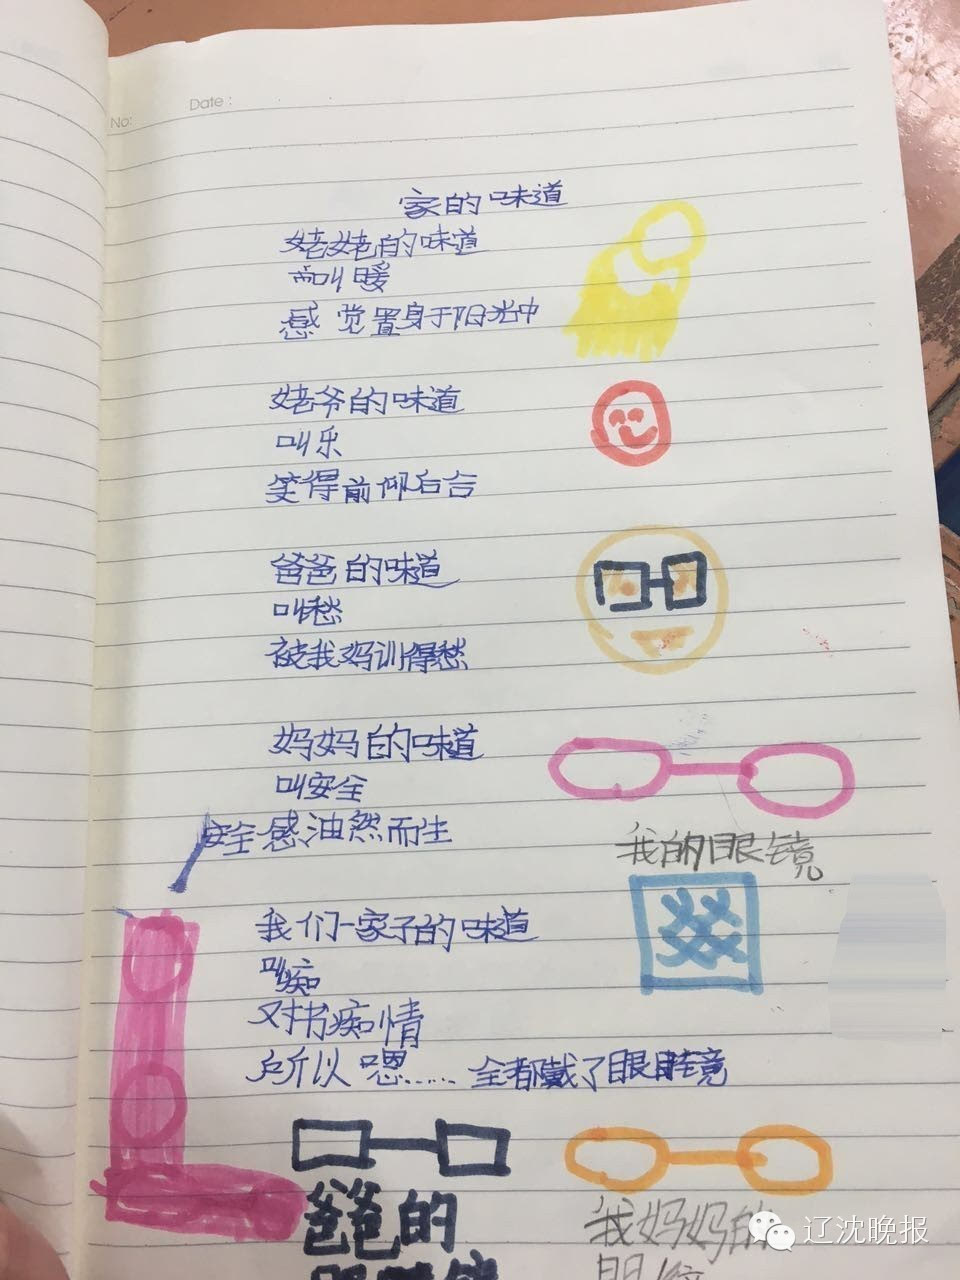 No:
Date :
家的味道
姥姥的味道
叫暖
感觉置身于阳光中
姥爷的味道
叫乐
笑得前仰后合
爸爸的味道
叫愁
被我妈训得愁
妈妈的味道
叫安全
安全感油然而生
我的眼镜
我们一家子的味道
叫痴
对书痴情
所以嗯…… 全都戴了眼睛镜
爸爸的
眼睛镜
我妈妈的
眼镜
辽沈晚报